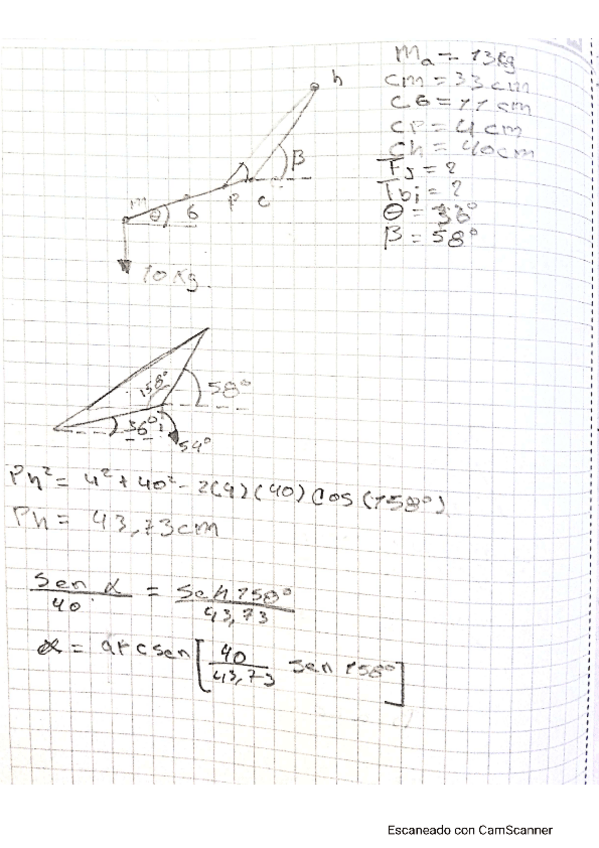 h
ma = 13Kg
cm = 33 cm
CG = 11 cm
CP = 4 cm
Ch = 40cm
Fj = ?
Tbi = ?
θ = 36°
β = 58°
β
m θ G P C
10 Kg.
158° 58°
36° 54°
Ph² = 4² + 40² - 2(4)(40) Cos (158°)
Ph = 43,73cm
Sen α / 40 = Sen 158° / 43,73
α = arcsen [ 40 / 43,73 sen 158° ]
Escaneado con CamScanner